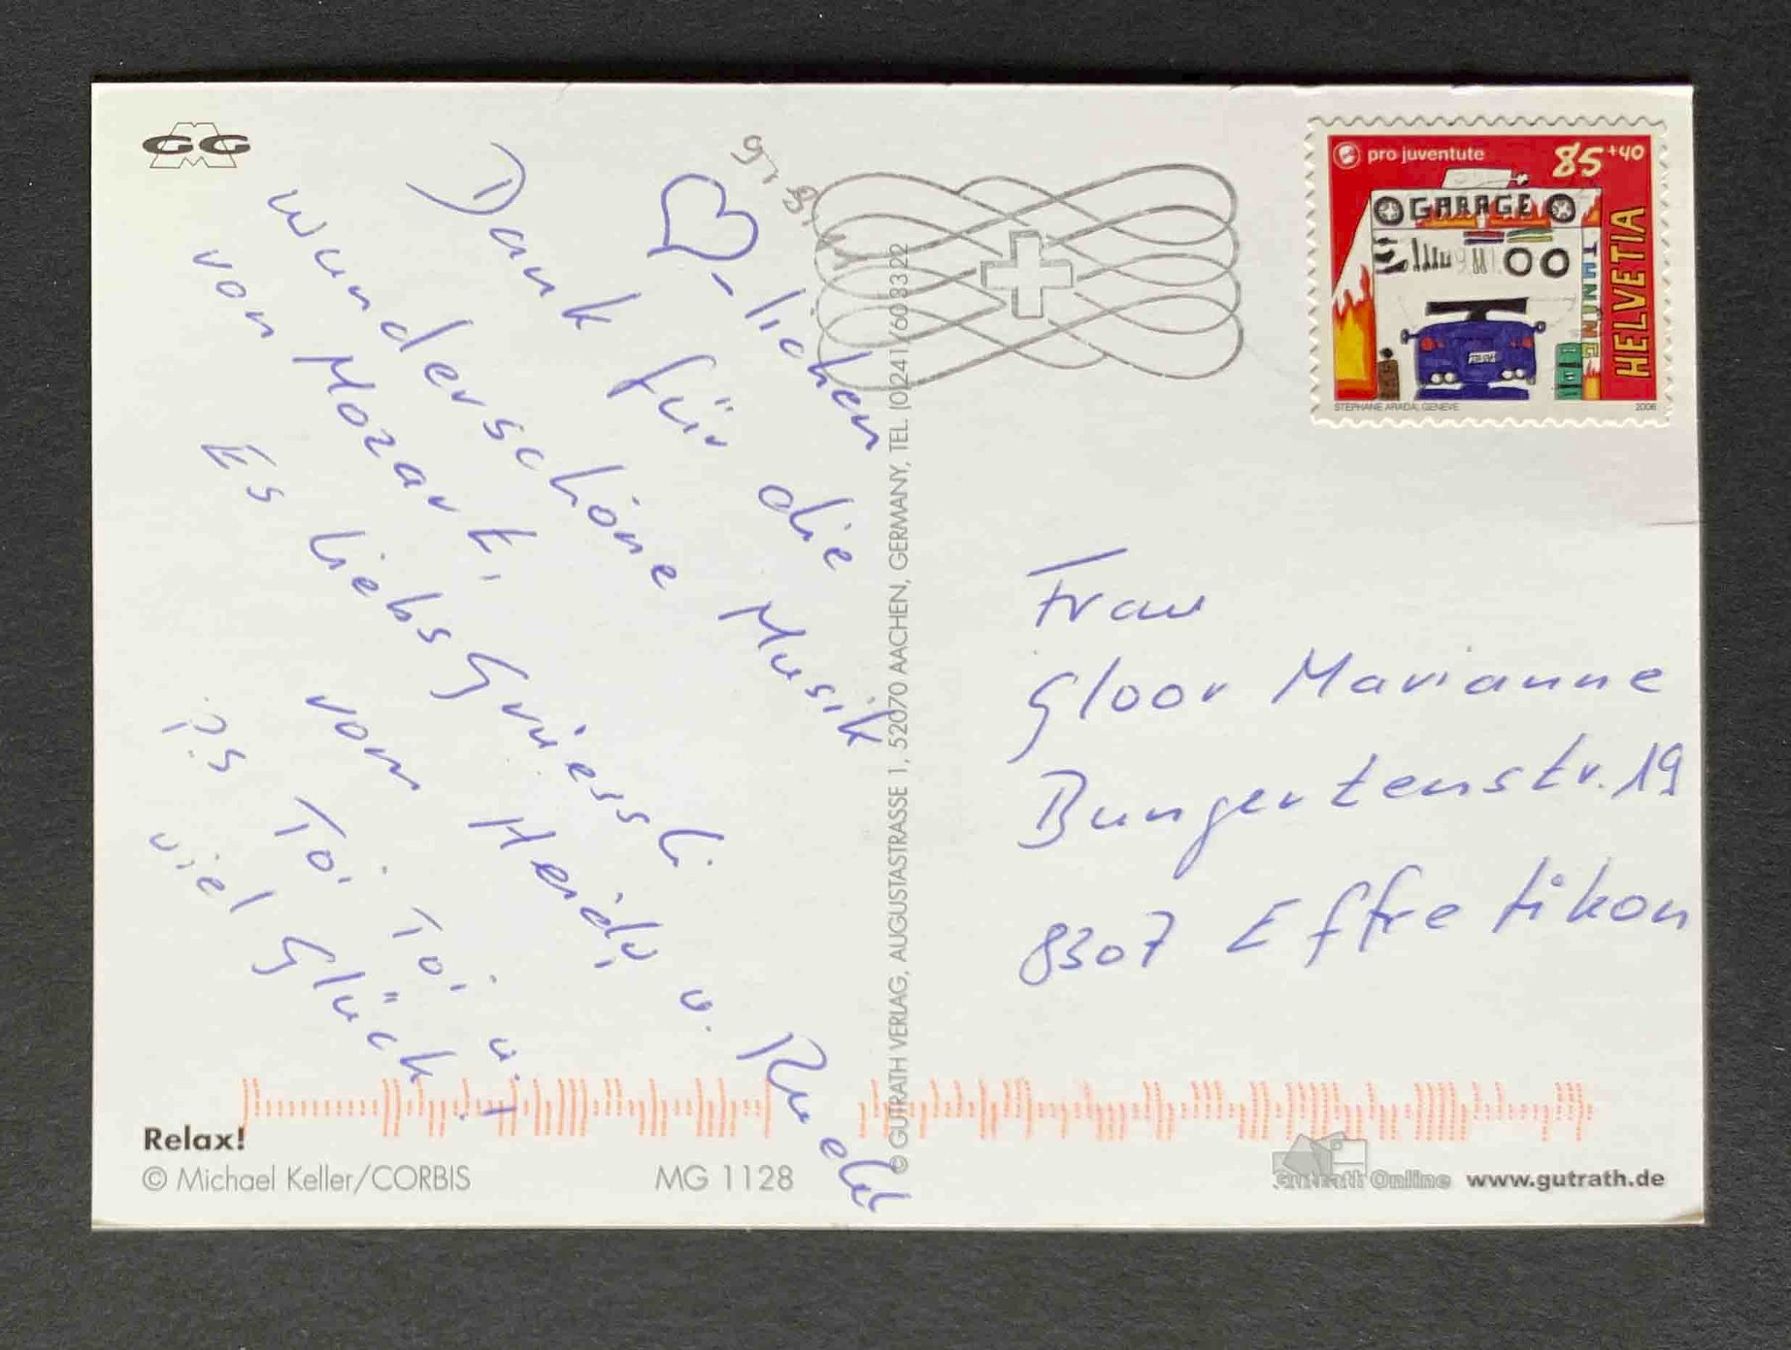 GG
♡-lichen
Dank für die
wunderschöne Musik
von Mozart,
Es liebs Griessli
vom Heidi, u. Ruedi
P.S Toi. Toi. u.
viel Glück!
© GUTRATH VERLAG, AUGUSTASTRASSE 1, 52070 AACHEN, GERMANY, TEL. (0241/603322
pro juventute 85+40
GARAGE
TUNING
HELVETIA
STEPHANE ARADA, GENEVE 2006
Frau
Gloor Marianne
Bungertenstr. 19
8307 Effretikon
Relax!
© Michael Keller/CORBIS
MG 1128
Gutrath Online www.gutrath.de